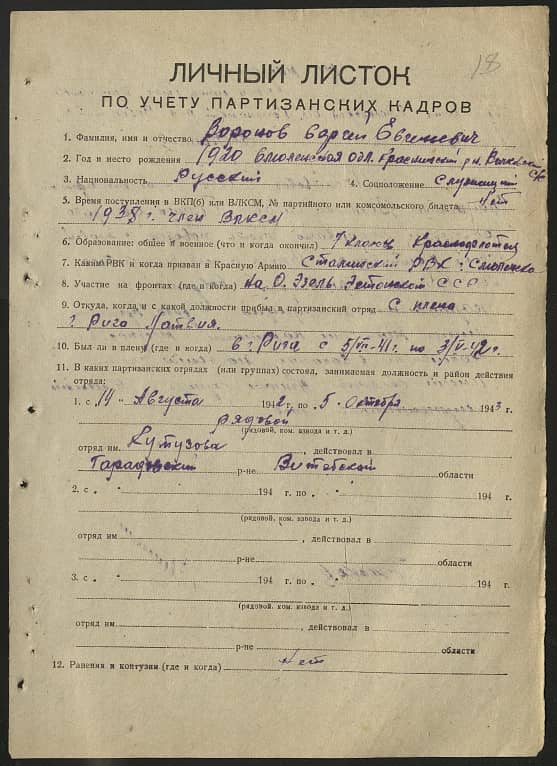 18
ЛИЧНЫЙ ЛИСТОК
ПО УЧЕТУ ПАРТИЗАНСКИХ КАДРОВ
1. Фамилия, имя и отчество Воронов Евгеневич
2. Год и место рождения 1920 Смоленская обл. Краснинский р-н
3. Национальность Русский 4. Соцположение Служащий
5. Время поступления в ВКП(б) или ВЛКСМ, № партийного или комсомольского билета Нет
1938 г. член ВЛКСМ
6. Образование: общее и военное (что и когда окончил) 7 классов
7. Каким РВК и когда призван в Красную Армию Сталинский РВК г. Смоленска
8. Участие на фронтах (где и когда) На О. Эзель Эстонской ССР
9. Откуда, когда и с какой должности прибыл в партизанский отряд С плена
г. Рига Латвия.
10. Был ли в плену (где и когда) в г. Рига с 5/VII-41г. по 3/VI-42г.
11. В каких партизанских отрядах (или группах) состоял, занимаемая должность и район действия
отряда:
1. с „14" Августа 1942 г., по „5" Октября 1943 г.
рядовой
(рядовой, ком. взвода и т. д.)
отряд им. Кутузова, действовал в
р-не Витебской области
2. с „ " 194 г. по „ " 194 г.
(рядовой, ком. взвода и т. д.)
отряд им. , действовал в
р-не области
3. с „ " 194 г. по „ " 194 г.
(рядовой, ком. взвода и т. д.)
отряд им. , действовал в
р-не области
12. Ранения и контузии (где и когда) Нет